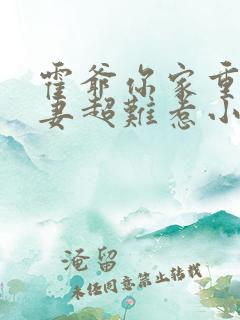 霍爷你家重
妻超難惹小
淹留
未任同意禁止转载